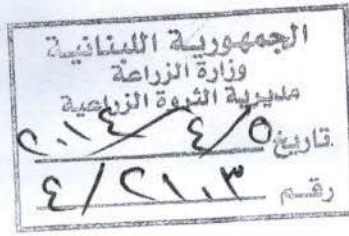 الجمهورية اللبنانية
وزارة الزراعة
مديرية الثروة الزراعية
تاريخ ٥/٤/٢٠١٤
رقم ٤/٢١٠٣